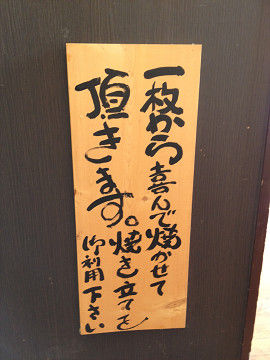 一枚から喜んで焼かせて
頂きます。焼き立てを
御利用下さい